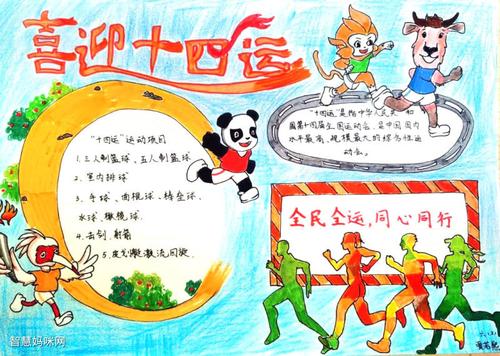 喜迎十四运
"十四运"运动项目
1、三人制篮球、五人制篮球
2、室内排球
3、手球、曲棍球、棒垒球、
水球、橄榄球.
4、击剑、射箭
"十四运"是指中华人民共和
国第十四届全国运动会,是中国国内
水平最高、规模最大的综合性运
动会。
全民全运,同心同行
智慧妈咪网